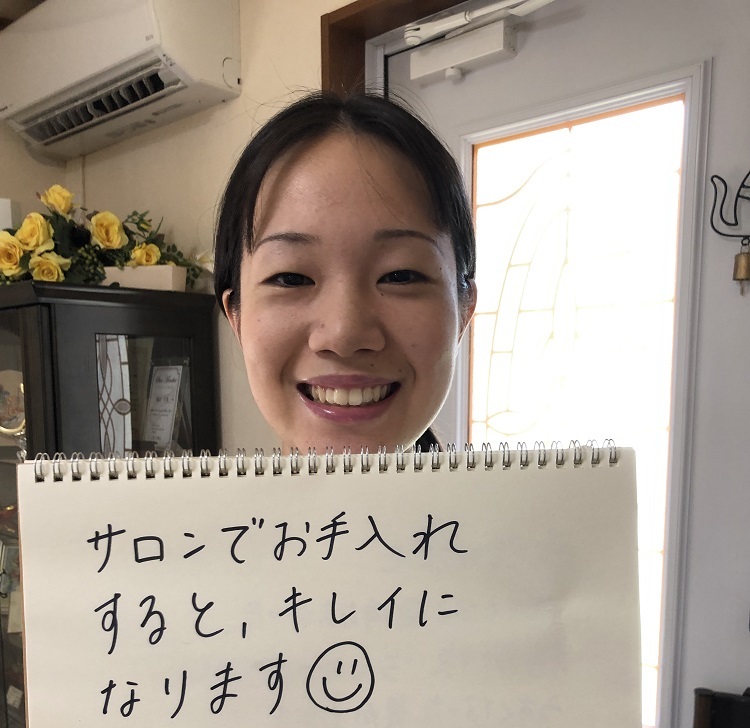 サロンでお手入れ
すると、キレイに
なります